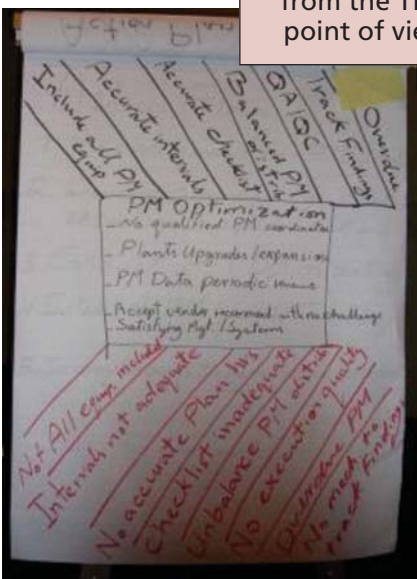 from the
point of vie
Include all PM
equip
Accurate intervals
Accurate checklist
Balanced PM
distrib
QA/QC
Track Findings
Overdue
PM Optimization
- No qualified PM coordinator
- Plants Upgrades/expansion
- PM Data periodic
- Accept vendor recommend with no challenge
- Satisfying Mgt./System
Not All equip included
Intervals not adequate
No accurate Plan hrs
Checklist inadequate
Unbalance PM distrib
No execution quality
Overdue PM
No mech to
track findings